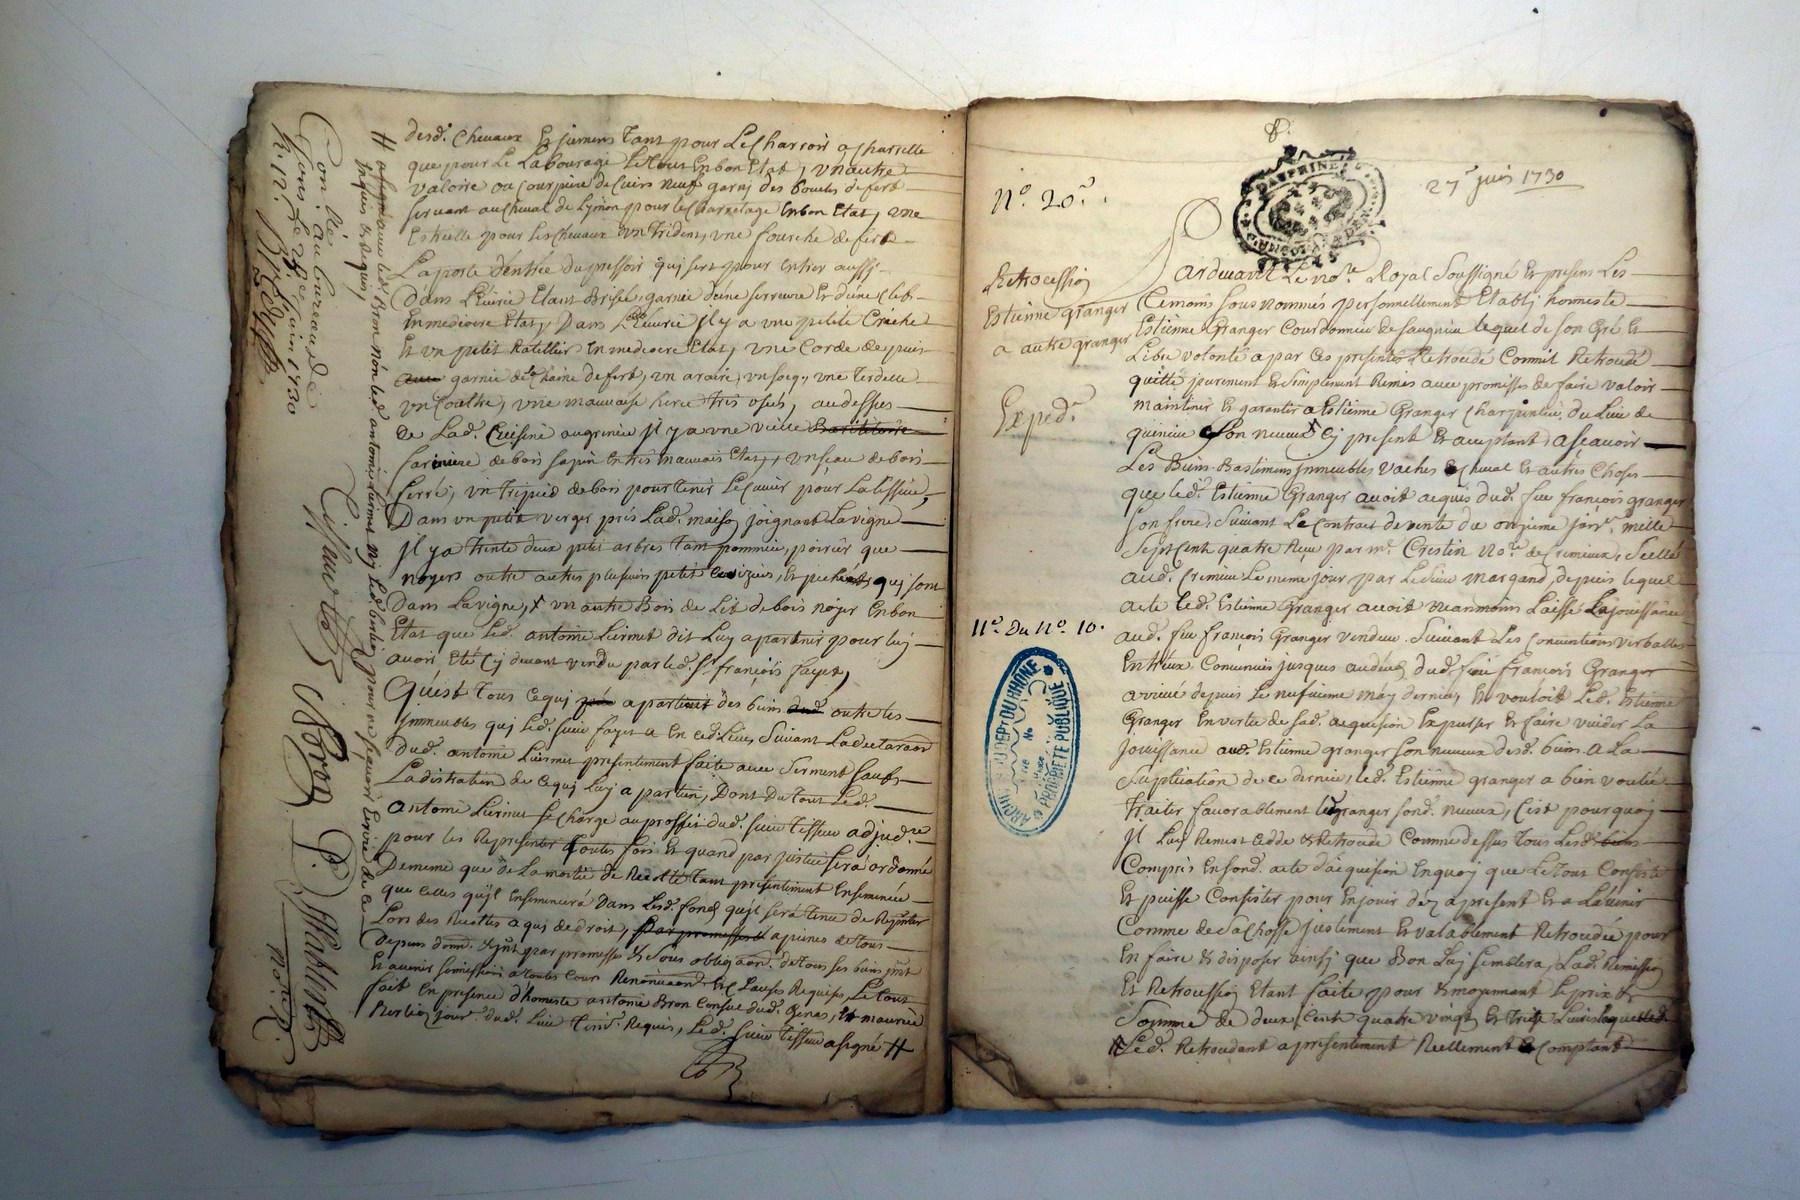 desd. Chevaux Et jumens tant pour Le Charroir a charette
que pour Le Labourage Le tout En bon Etat, un autre
valoire ou Courpière de Cuirs neufs garnj des boucles de fert
servant au Cheval de Lymon pour le Charretage En bon Etat, une
Estrielle pour Les Chevaux un Trident, une fourche de fert
La porte d'entrée du pressoir quj sert pour Entrer aussj
Dans L'Ecurie Etant Brisée, garnie d'une serreure Et d'une clef
En mediocre Etat, Dans L'Ecurie il y a une petite Creche
Et un petit Ratellier En mediocre Etat, une Corde de puis
garnie de sa Chaine de fert, un araire, un socq, une
un Coultre, une mauvaise herce tres usée, au dessus
de Lad. Cuisine au grenier Il y a une vieille
fariniere de bois sapin En tres mauvais Etat, un seau de bois
ferré, un trepied de bois pour tenir Le Cuvier pour La Lessive,
Dans un petit verger près Lad. maison joignant La vigne
Il y a trente deux petit arbres tant pommier, poirier que
noyers outre autres plusieurs petit Cerizier, Et pechers quj sont
Dans La vigne, un autre Bois de Lit de bois noyer En bon
Etat que Led. antoine Liermet dit Luy apartenir pour luj
avoir Eté Cy devant vendu par led. Sr. françois fayet,
Qu'est tous Ce quj apartient des biens outre les
immeubles quj Led. sieur fayet a En Ced. Lieu, Suivant La declaraon
dud. antoine Liermet presentement faite avec Serment Saufs
La distration de Ce quj Luj apartien, Dont Du tout Led.
antoine Liermet se Charge au proffit dud. sieur Tisseur adjudre
pour les Representer toutes fois Et quand par justice sera ordonné
De meme que de La moitié de Recolte tant presentement Ensemencée
que Celles qu'il Ensemencera Dans Lesd. fonds qu'il sera tenu de Reporter
Lors des Recoltes a quj de droit, par promesses a peines de tous
depens dom. Et jnt par promesses & Sous obligaon de tous ses biens pnt
Et avenir soumission a toutes Cour Renonciaon & Clauses Requises, Le tout
fait En presence d'honneste antoine Bron Consul dud. Genas, Et maurice
Berlioz dud. Lieu Temo. Requis, Led. sieur Tisseur a signé #
# avec led. Bron non led. antoine Liermet Nj Led. berlioz pour ne sçavoir Ecrire de ce
Enquis & Requis,
Bron
No.re R.
Con.lé au bureau de
Gons. Le 28e juin 1730
R. 12 s.
8.
DAUPHINE
27e juin 1730
No. 20e.
Retrocession
Estienne granger
a autre granger
Expede.
11e. Du No. 10.
ARCHIVES DU DEPT DU RHONE
PROPRIÉTÉ PUBLIQUE
Pardevant Le nore. Royal Soussigné Et presens Les
temoins sous nommés personnellement Etablj honneste
Estienne Granger Courdonnier de Saugnieu lequel de son Gré Et
Libre volonté a par Ces presentes Retrocedé Commil Retrocede
quitte purement & simplement Remis avec promesses de faire valoir
maintenir Et garentir a Estienne Granger Charpentier du Lieu de
quinieu son neveux Cy present Et acceptant, a scavoir
Les Biens Bastimens immeubles vaches & cheval Et autres Choses
que led. Estienne Granger avoit acquis dud. feu françois granger
son frere, Suivant Le Contrat de vente du onzieme janr. mille
Sept Cent quatre Receu par me. Crestin Nore. de Cremieux, Scellé
aud. Cremieu Le meme jour par Le Sieur margand, depuis lequel
acte led. Estienne Granger avoit neanmoins Laissé La jouissance
aud. feu françois Granger vendeur Suivant Les Conventions verballes
Entreux Convenues jusques au deces dud. feu françois Granger
arrivé depuis Le neufvieme may dernier, Et vouloit Led. Estienne
Granger En vertu de sad. acquision Expulser & faire vuider La
jouissance aud. Estienne granger son neveux desd. biens a La
suplication de Ce dernier, led. Estienne granger a bien voulu
traiter favorablement led granger sond. neveux, C'est pourquoj
Il Luj Remest Cedde & Retrocede Comme dessus tous Lesd. biens
Compris En sond. acte d'acquision En quoj que Le tout Consiste
Et puisse Consister pour En jouir dez a present Et a L'avenir
Comme de sa Chose justement Et valablement Retrocedée pour
En faire & disposer ainsj que Bon Luj Semblera, Lad. Remission
Et Retrocession Etant faite pour & moyennant le prix &
Somme de deux Cent quatre vingt Et treize Livres
Led. Retrocedant a presentement Reellement & Comptant